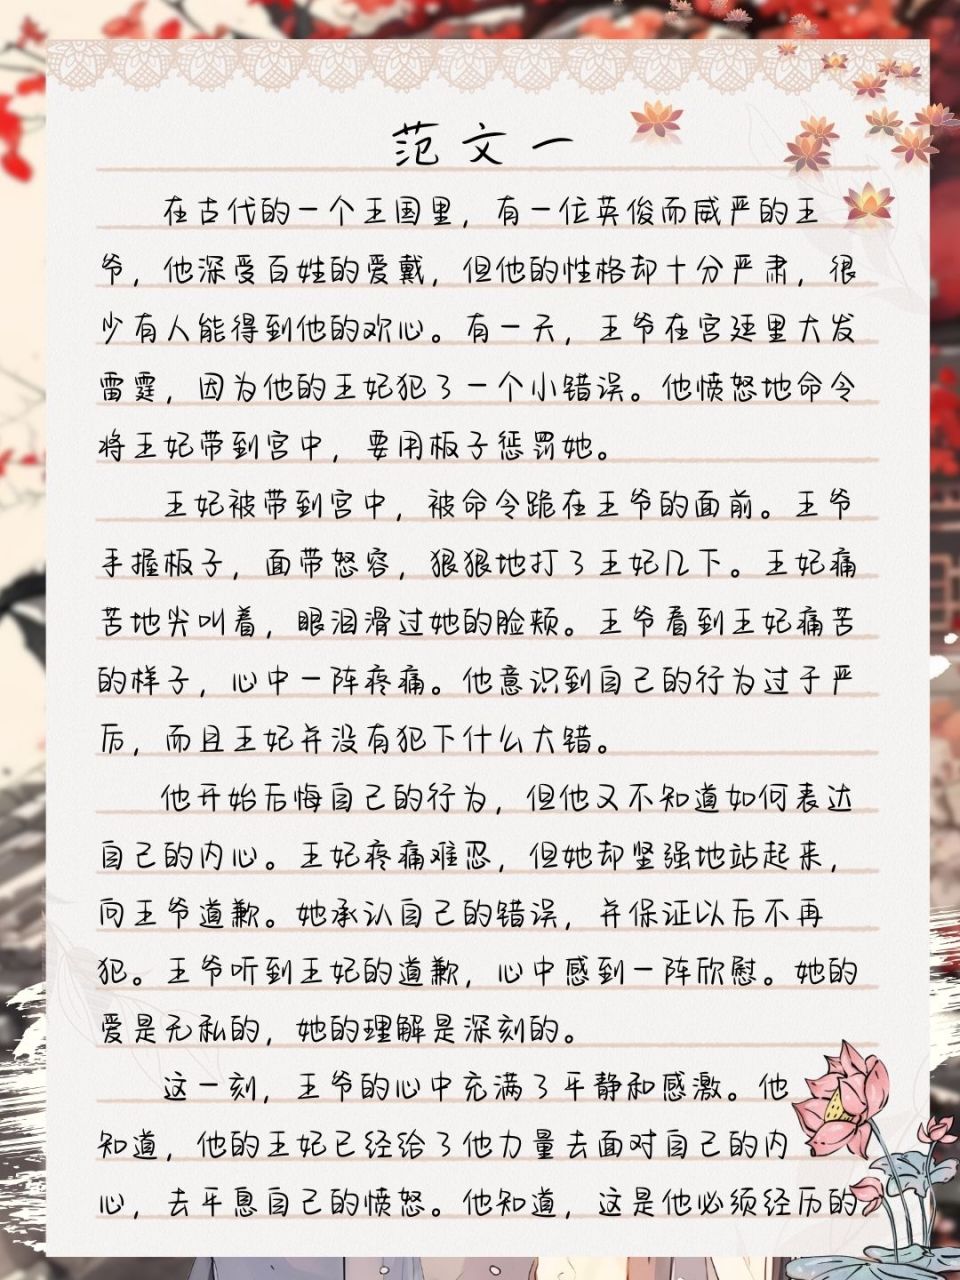 范文一
在古代的一个王国里，有一位英俊而威严的王
爷，他深受百姓的爱戴，但他的性格却十分严肃，很
少有人能得到他的欢心。有一天，王爷在宫廷里大发
雷霆，因为他的王妃犯了一个小错误。他愤怒地命令
将王妃带到宫中，要用板子惩罚她。
王妃被带到宫中，被命令跪在王爷的面前。王爷
手握板子，面带怒容，狠狠地打了王妃几下。王妃痛
苦地尖叫着，眼泪滑过她的脸颊。王爷看到王妃痛苦
的样子，心中一阵疼痛。他意识到自己的行为过于严
厉，而且王妃并没有犯下什么大错。
他开始后悔自己的行为，但他又不知道如何表达
自己的内心。王妃疼痛难忍，但她却坚强地站起来，
向王爷道歉。她承认自己的错误，并保证以后不再
犯。王爷听到王妃的道歉，心中感到一阵欣慰。她的
爱是无私的，她的理解是深刻的。
这一刻，王爷的心中充满了平静和感激。他
知道，他的王妃已经给了他力量去面对自己的内
心，去平息自己的愤怒。他知道，这是他必须经历的